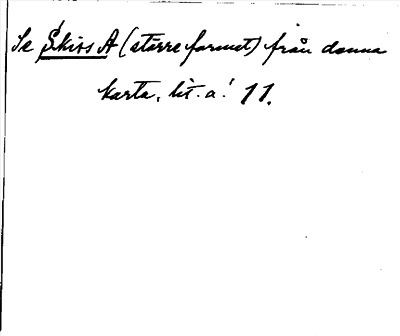 Se Skiss A (större format) från denna
karta, lit. a! 11.